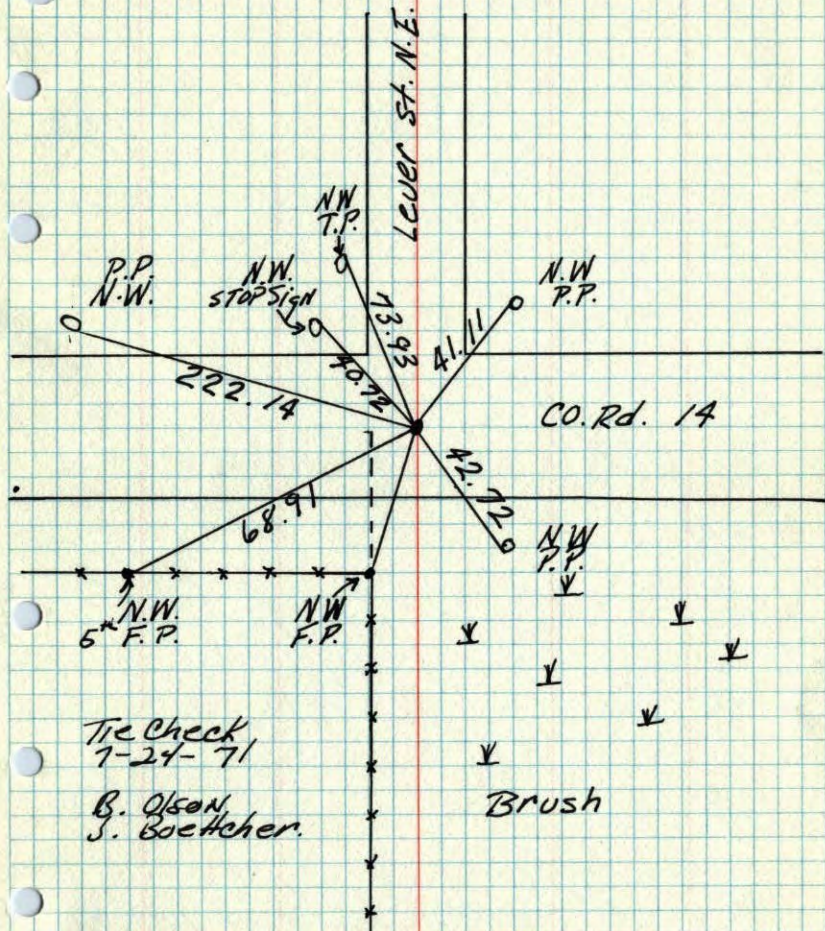 Lever St. N.E.
NW
T.P.
P.P.
N.W.
N.W.
STOP Sign
N.W
P.P.
73.93
41.11
40.72
222.14
CO. Rd. 14
42.72
68.91
N W
P.P.
N.W.
5th F.P.
NW
F.P.
Tie Check
7-24-71
B. Olson
J. Boettcher.
Brush